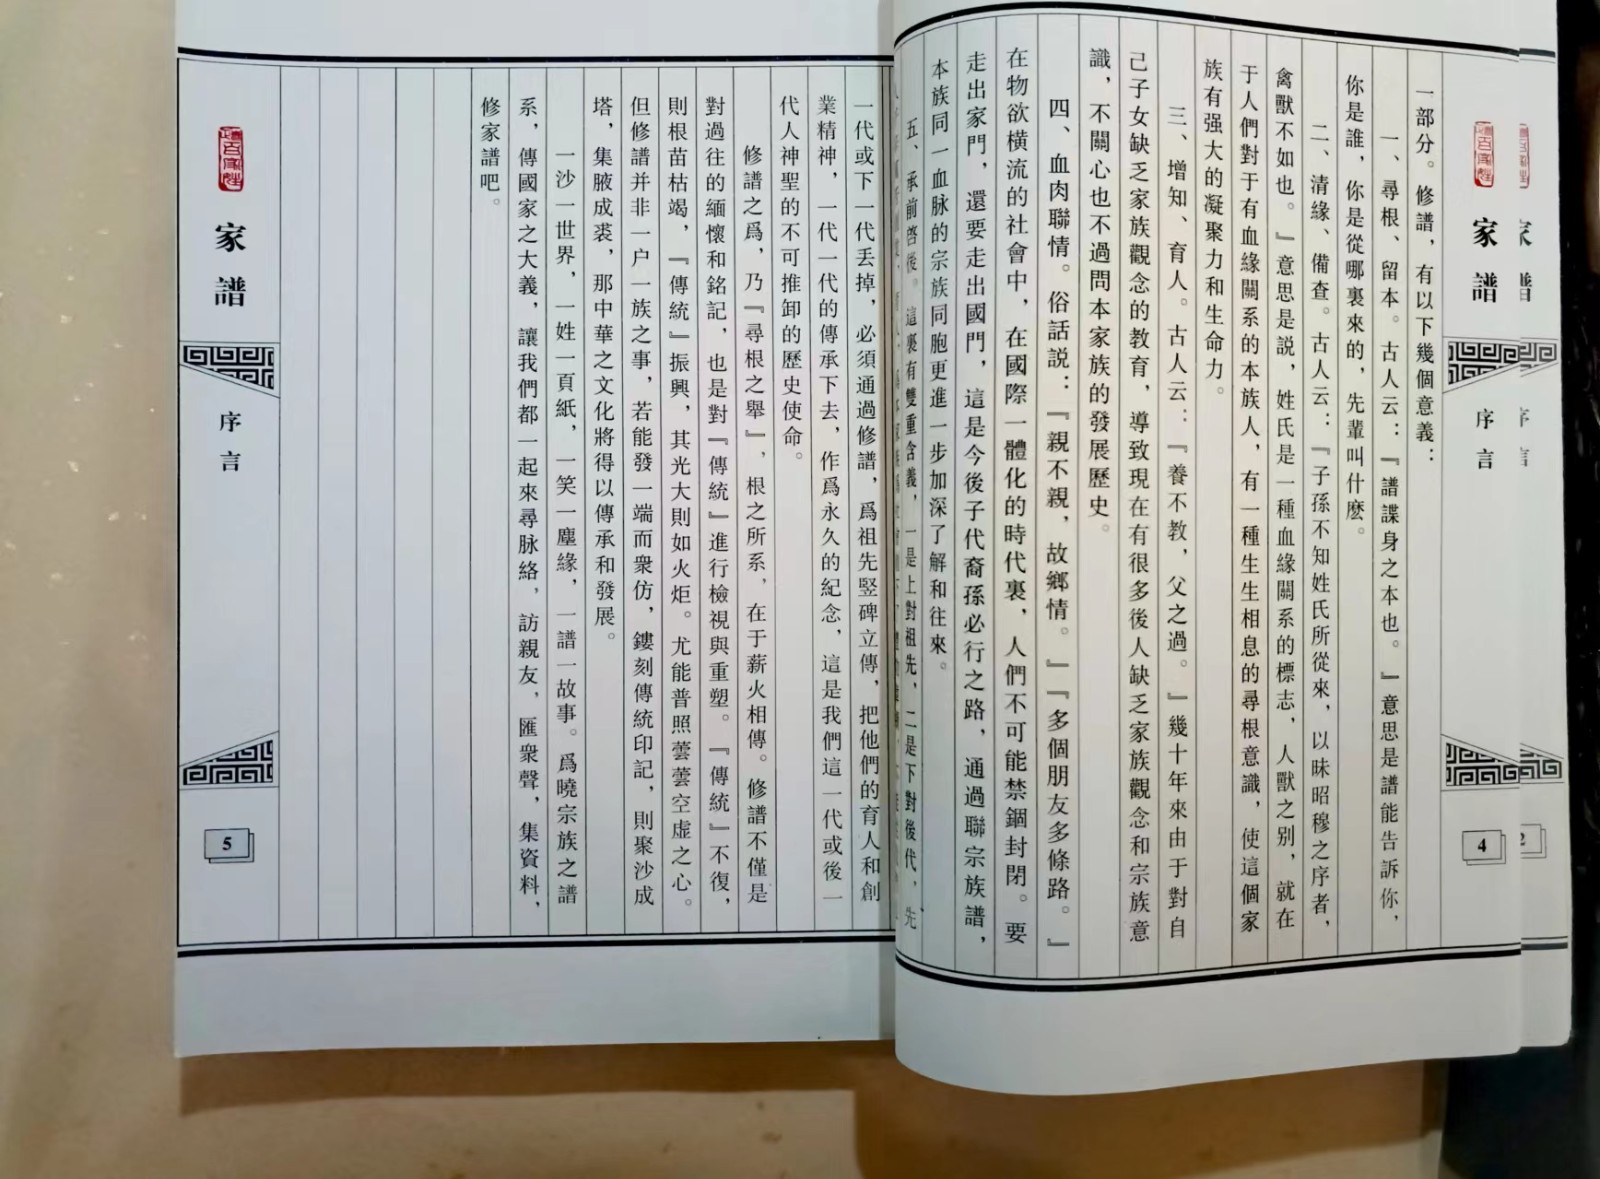 家譜
序言
4
一部分。修譜，有以下幾個意義：
一、尋根、留本。古人云：『譜諜身之本也。』意思是譜能告訴你，
你是誰，你是從哪裏來的，先輩叫什麽。
二、清緣、備查。古人云：『子孫不知姓氏所從來，以昧昭穆之序者，
禽獸不如也。』意思是説，姓氏是一種血緣關系的標志，人獸之别，就在
于人們對于有血緣關系的本族人，有一種生生相息的尋根意識，使這個家
族有强大的凝聚力和生命力。
三、增知、育人。古人云：『養不教，父之過。』幾十年來由于對自
己子女缺乏家族觀念的教育，導致現在有很多後人缺乏家族觀念和宗族意
識，不關心也不過問本家族的發展歷史。
四、血肉聯情。俗話説：『親不親，故鄉情。』『多個朋友多條路。』
在物欲横流的社會中，在國際一體化的時代裏，人們不可能禁錮封閉。要
走出家門，還要走出國門，這是今後子代裔孫必行之路，通過聯宗族譜，
本族同一血脉的宗族同胞更進一步加深了解和往來。
五、承前啓後。這裏有雙重含義，一是上對祖先，二是下對後代，先
家譜
序言
5
一代或下一代丢掉，必須通過修譜，爲祖先竪碑立傳，把他們的育人和創
業精神，一代一代的傳承下去，作爲永久的紀念，這是我們這一代或後一
代人神聖的不可推卸的歷史使命。
修譜之爲，乃『尋根之舉』，根之所系，在于薪火相傳。修譜不僅是
對過往的緬懷和銘記，也是對『傳統』進行檢視與重塑。『傳統』不復，
則根苗枯竭，『傳統』振興，其光大則如火炬。尤能普照蕓蕓空虚之心。
但修譜并非一户一族之事，若能發一端而衆仿，鏤刻傳統印記，則聚沙成
塔，集腋成裘，那中華之文化將得以傳承和發展。
一沙一世界，一姓一頁紙，一笑一塵緣，一譜一故事。爲曉宗族之譜
系，傳國家之大義，讓我們都一起來尋脉絡，訪親友，匯衆聲，集資料，
修家譜吧。